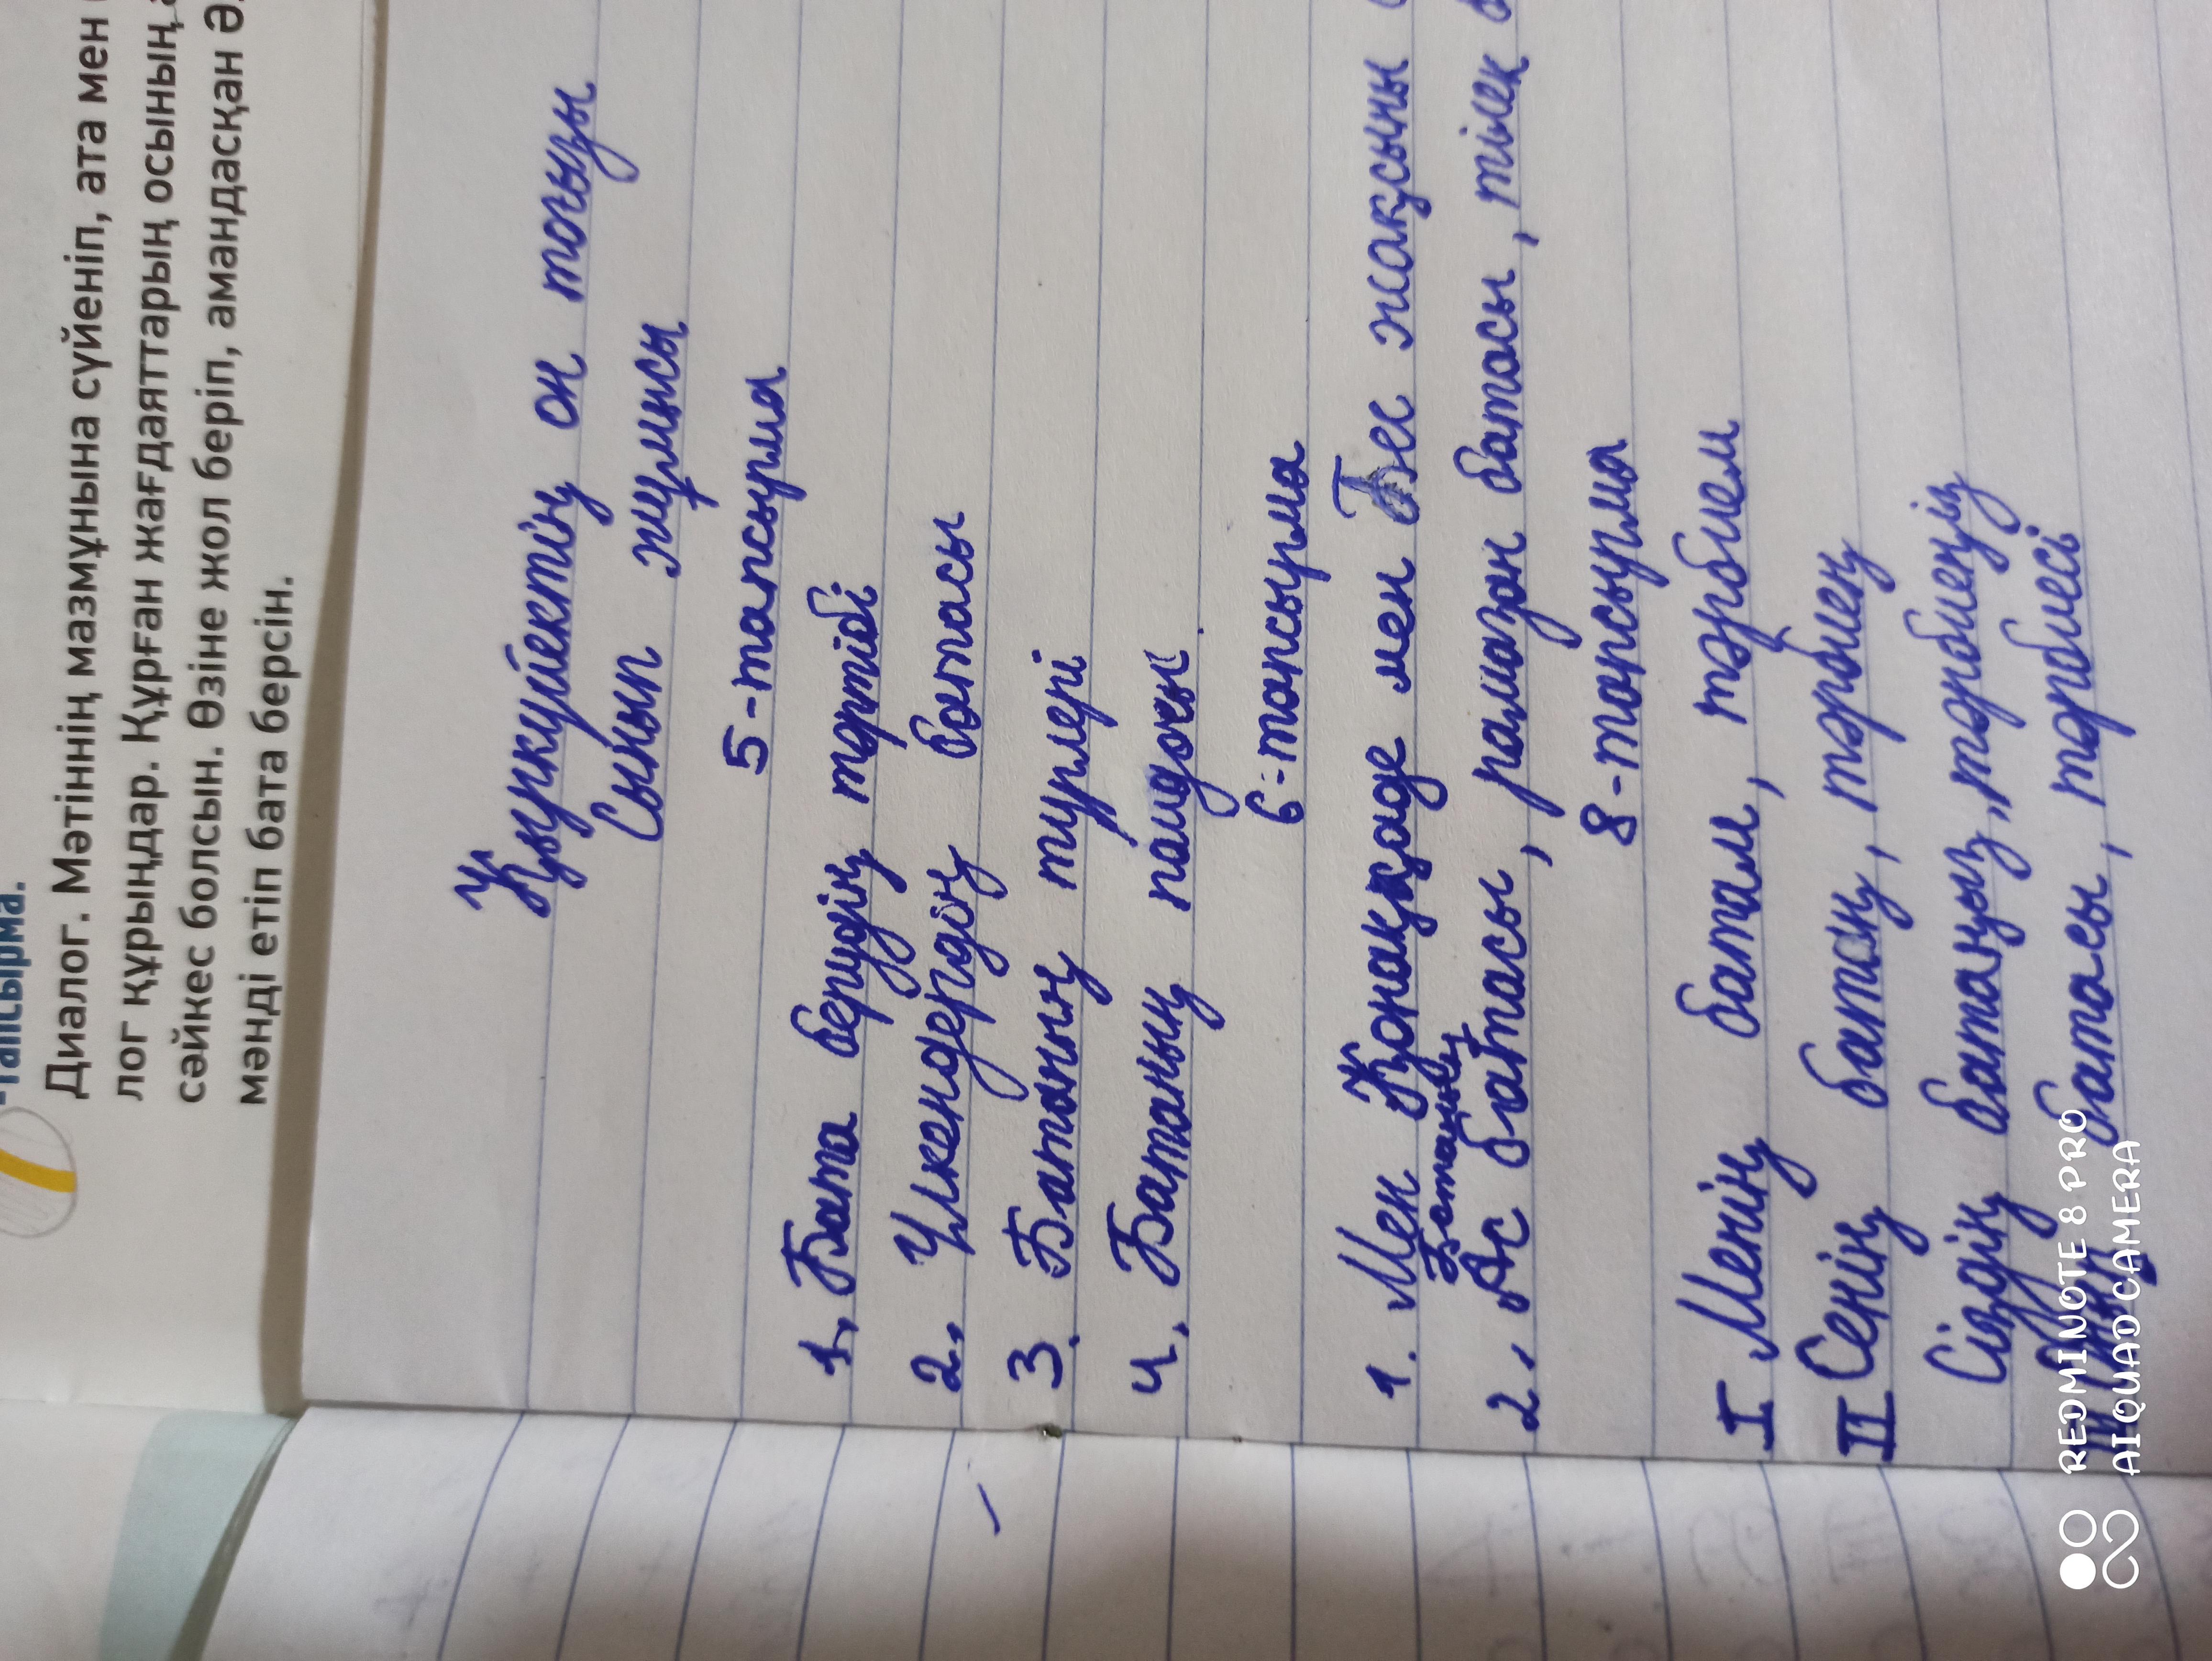 тапсырма.
Диалог. Мәтіннің мазмұнына сүйеніп, ата мен
лог құрыңдар. Құрған жағдаяттарың осының
сәйкес болсын. Өзіне жол беріп, амандасқан
мәнді етіп бата берсін.
Қыркүйектің он тоғызы
Сынып жұмысы
5-тапсырма
1. Бата берудің тәртібі
2. Үлкендердің батасы
3. Батаның түрлері
4. Батаның пайдасы
6-тапсырма
1. Мен Қонақкәде мен жақсыны
Батаның
2. Ас батасы, рамазан батасы, тілек
8-тапсырма
I Менің батам, тәрбием
II Сенің батаң, тәрбиең
Сіздің батаңыз, тәрбиеңіз
III Оның батасы, тәрбиесі
REDMI NOTE 8 PRO
AI QUAD CAMERA